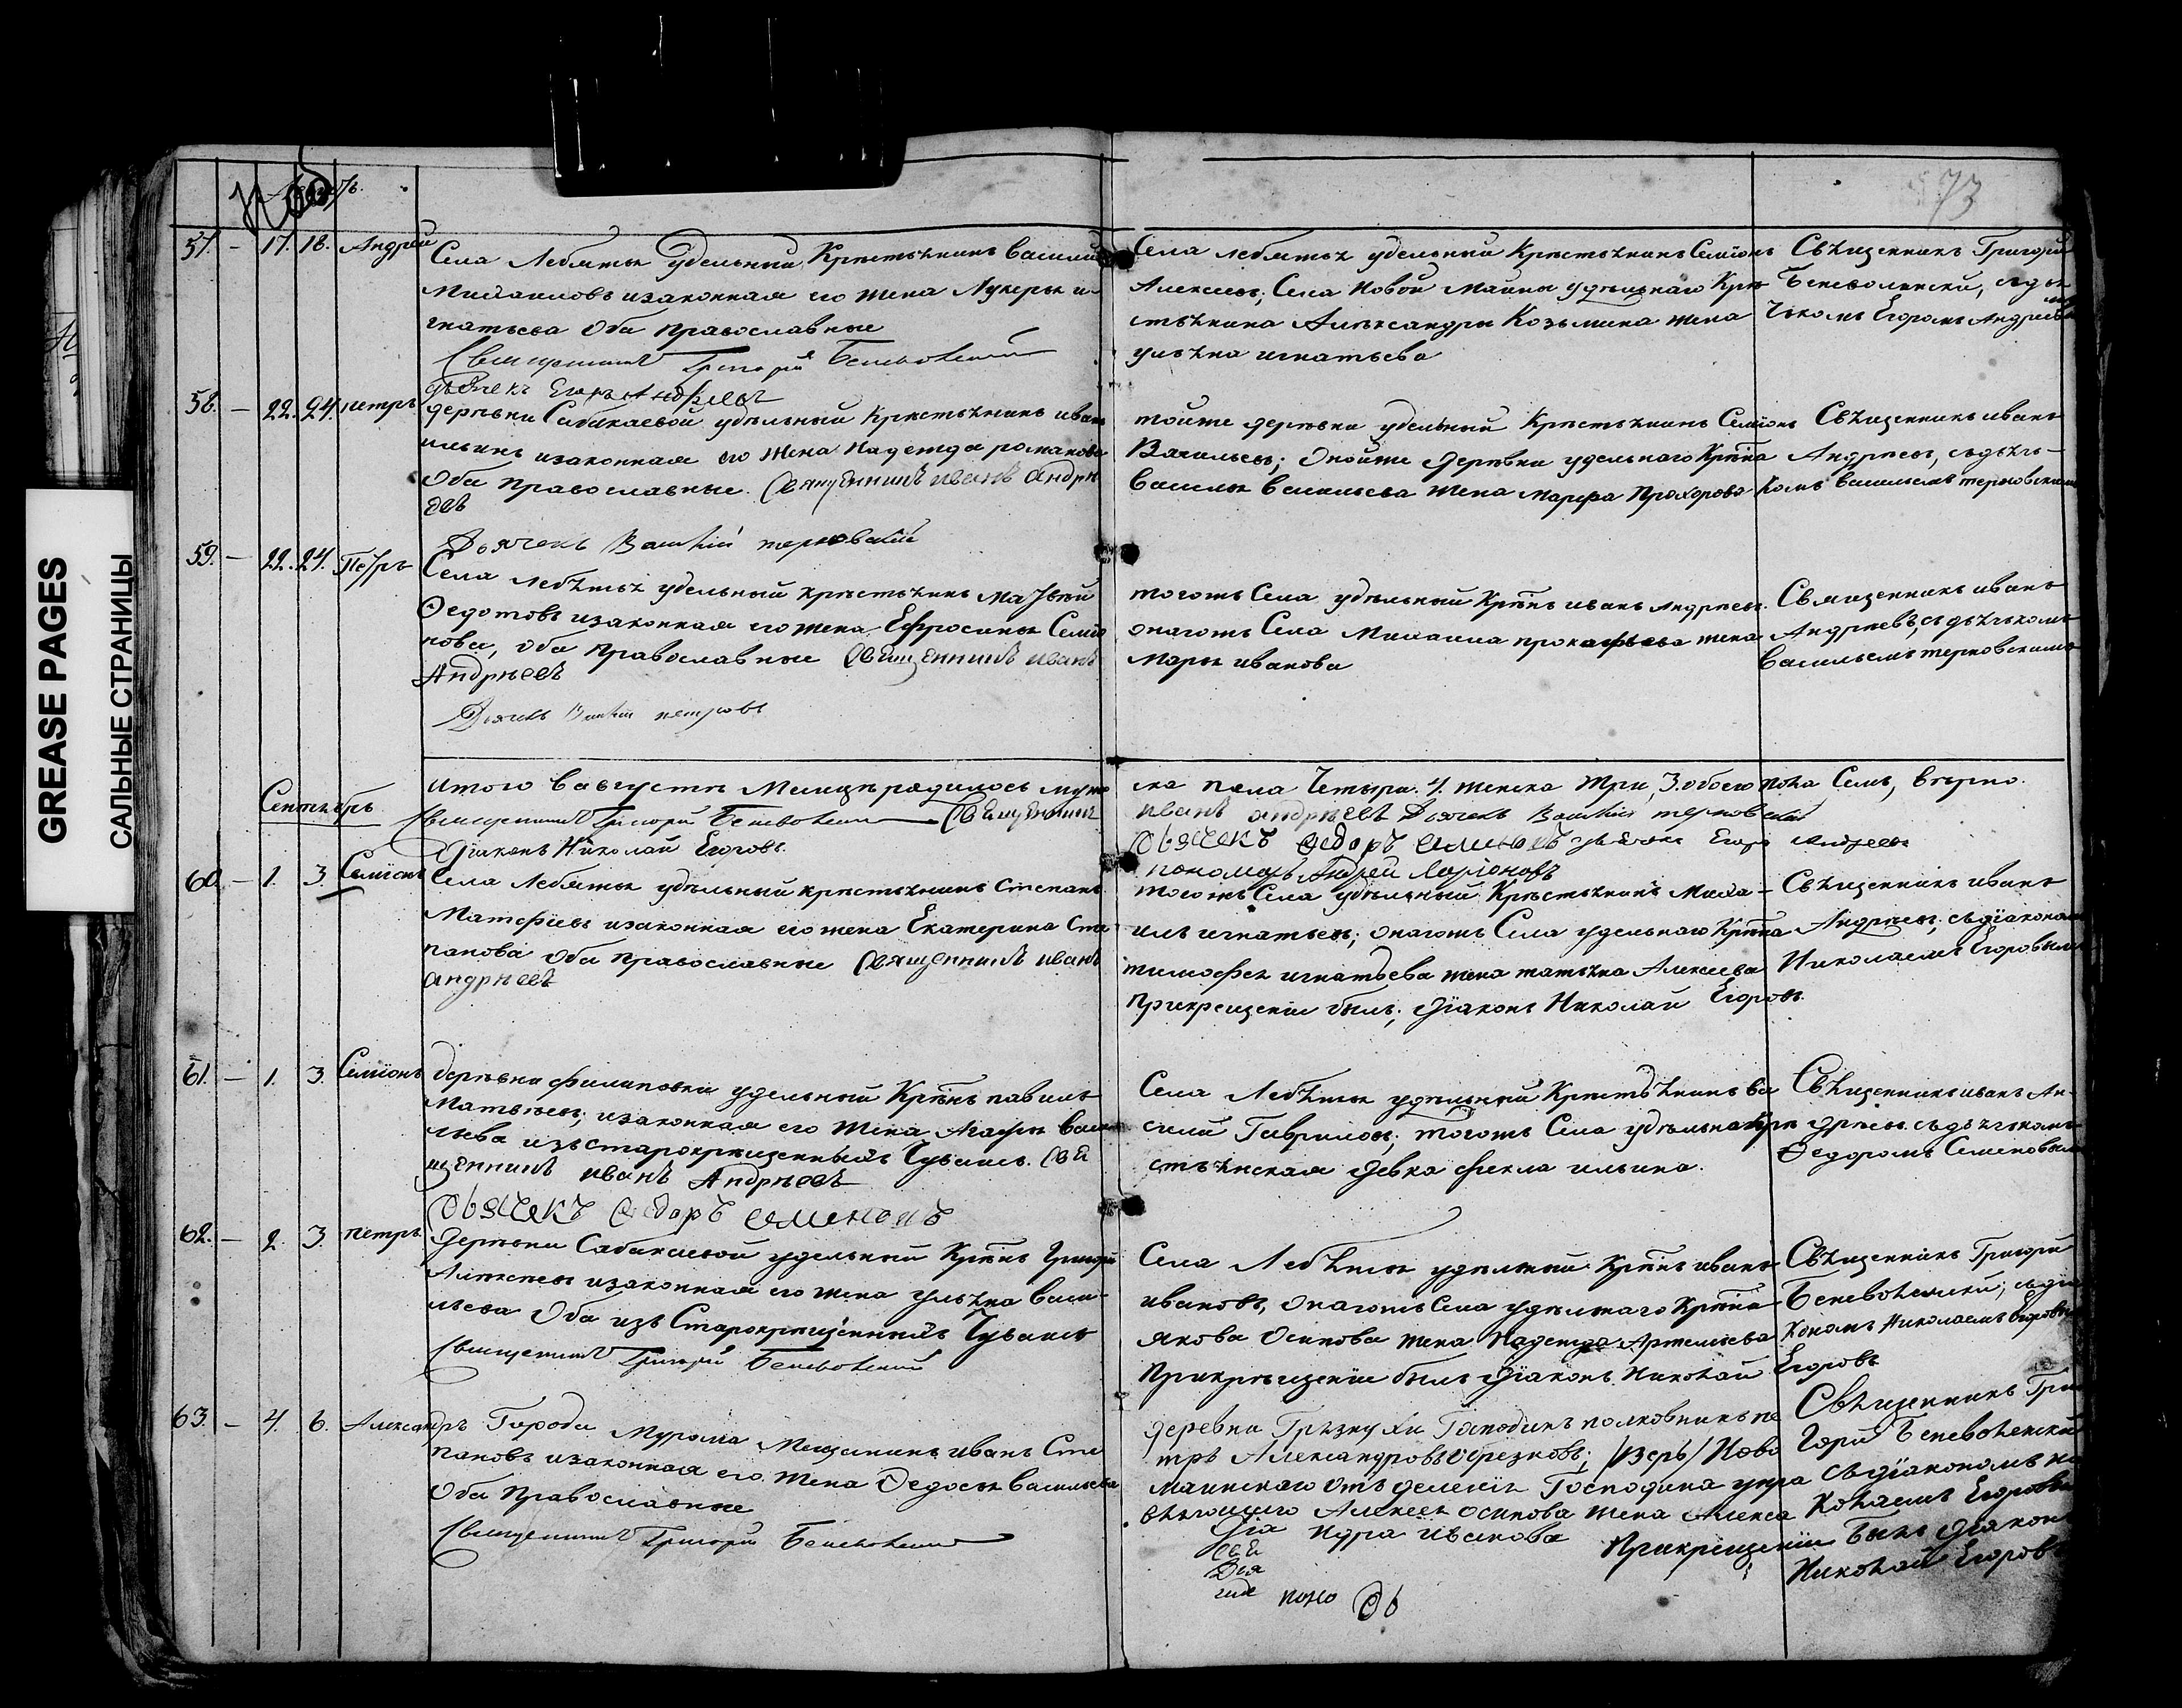 GREASE PAGES
САЛЬНЫЕ СТРАНИЦЫ
73
57. – 17. 18. Андрей
Села Лебяжья удельный Крестьянинъ Василий
Михаиловъ изаконная его жена Лукерья и-
гнатьева Оба православные
Священникъ Григорій Беневоленскій
дьячекъ Егоръ Андреевъ
Села лебяжья удельный Крестьянинъ Семіонъ
Алексеевъ; Села Новой Майны удѣльнаго Кре
стьянина Александра Козьмина жена
ульяна игнатьева
Священникъ Григорій
Беневоленски, съдья
чкомъ Егоромъ Андреевымъ
58. – 22. 24. петръ
деревни Сабакаевой удѣльный Крестьянинъ иванъ
ильинъ изаконная его жена Надежда романова
Оба православные. Священникъ иванъ андрѣ
евъ
Дьячекъ Василій терновскій
тойже деревни удельный Крестьянинъ Семіонъ
Васильевъ; Онойже деревни удельнаго Крѣна
Василья Васильева жена марфа Прохорова
Священникъ иванъ
Андреевъ, съдьяч-
комъ Васильемъ терновскимъ
59. – 22. 24. Петръ
Села лебяжья удельный крестьянинъ матвѣй
Ѳедотовъ изаконная его жена Ефросинья Семіо
нова, Оба православные Священникъ иванъ
Андрѣевъ
Дьячекъ
тогожъ Села удѣльный Крѣнъ иванъ Андреевъ.
онагожъ Села михаила прокафьева жена
марья иванова
Священникъ иванъ
Андреевъ, съдьячкомъ
Васильемъ терновскимъ
итого Вавгустѣ Месяцѣ родилось муже
ска пола Четыри. 4. женска три, 3. обоего пола Семь, вѣрно.
Священникъ Григорій Беневоленскій Священникъ
иванъ андрѣевъ Дьячекъ Василій терновскій
Діаконъ Николай Егоровъ.
Дьячекъ Ѳедоръ семеновъ дьячекъ Егоръ андреевъ
пономарь Андрей Ларіоновъ
Сентябрь
60. – 1. 3. Семіонъ
Села Лебяжья удѣльный крестьянинъ Степанъ
Матфѣевъ изаконная его жена Екатерина Сте
панова Оба православные Священникъ иванъ
андрѣевъ
тогожъ Села удѣльный Крестьянинъ Миха-
илъ игнатьевъ; онагожъ Села удельнаго Крѣна
тимофея игнатьева жена татьяна Алексеева
Прикрещеніи былъ; діаконъ Николай Егоровъ.
Священникъ иванъ
Андреевъ; съдіакономъ
Николаемъ Егоровымъ
61. – 1. 3. Семіонъ
деревни филиповки удельный Крѣнъ павилъ
Матвѣевъ; изаконная его жена Агафья Васи
льева изъ старокрещенныхъ Чувашъ. Свя
щенникъ иванъ Андрѣевъ
Дьячекъ Ѳедоръ семеновъ
Села Лебяжья удѣльный Крестьянинъ ва
силий Гавриловъ; тогожъ Села удѣльная Кре
стьянская девка фекла ильина.
Священникъ иванъ Ан-
дреевъ съдьячкомъ
Ѳедоромъ Семеновымъ
62. – 2. 3. петръ
Деревни Сабакаевой удельный Крѣнъ Григорій
Алексеевъ изаконная его жена ульяна Васи-
льева Оба изъ Старокрещенныхъ Чувашъ
Священникъ Григорій Беневоленскій
Села Лебяжья удѣльный Крѣнъ иванъ
ивановъ, онагожъ Села удѣльнаго Крѣна
якова Осипова жена Надежда Артемьева
Прикрѣщеніи былъ діаконъ Николай Егоровъ
Священникъ Григорій
Беневоленски; съдіа
кономъ Николаемъ Егоровымъ
63. – 4. 6. Александръ
Города Мурома Мещанинъ иванъ Сте
пановъ изаконная его жена Ѳедосья Васильева
Оба Православные
Священникъ Григорій Беневоленскій
деревни Грязнухи Господинъ полковникъ пе
тръ Александровъ Ново
маинскаго отъделенія Господина упра
вляющаго Алексея осипова жена Алекса
ндра иванова Прикрещеніи Былъ діаконъ
Николай Егоровъ
Священникъ Гри
горій Беневоленскій
съдіакономъ ни
колаемъ Егоровымъ
Діа
Свя
Дья
поно Дь